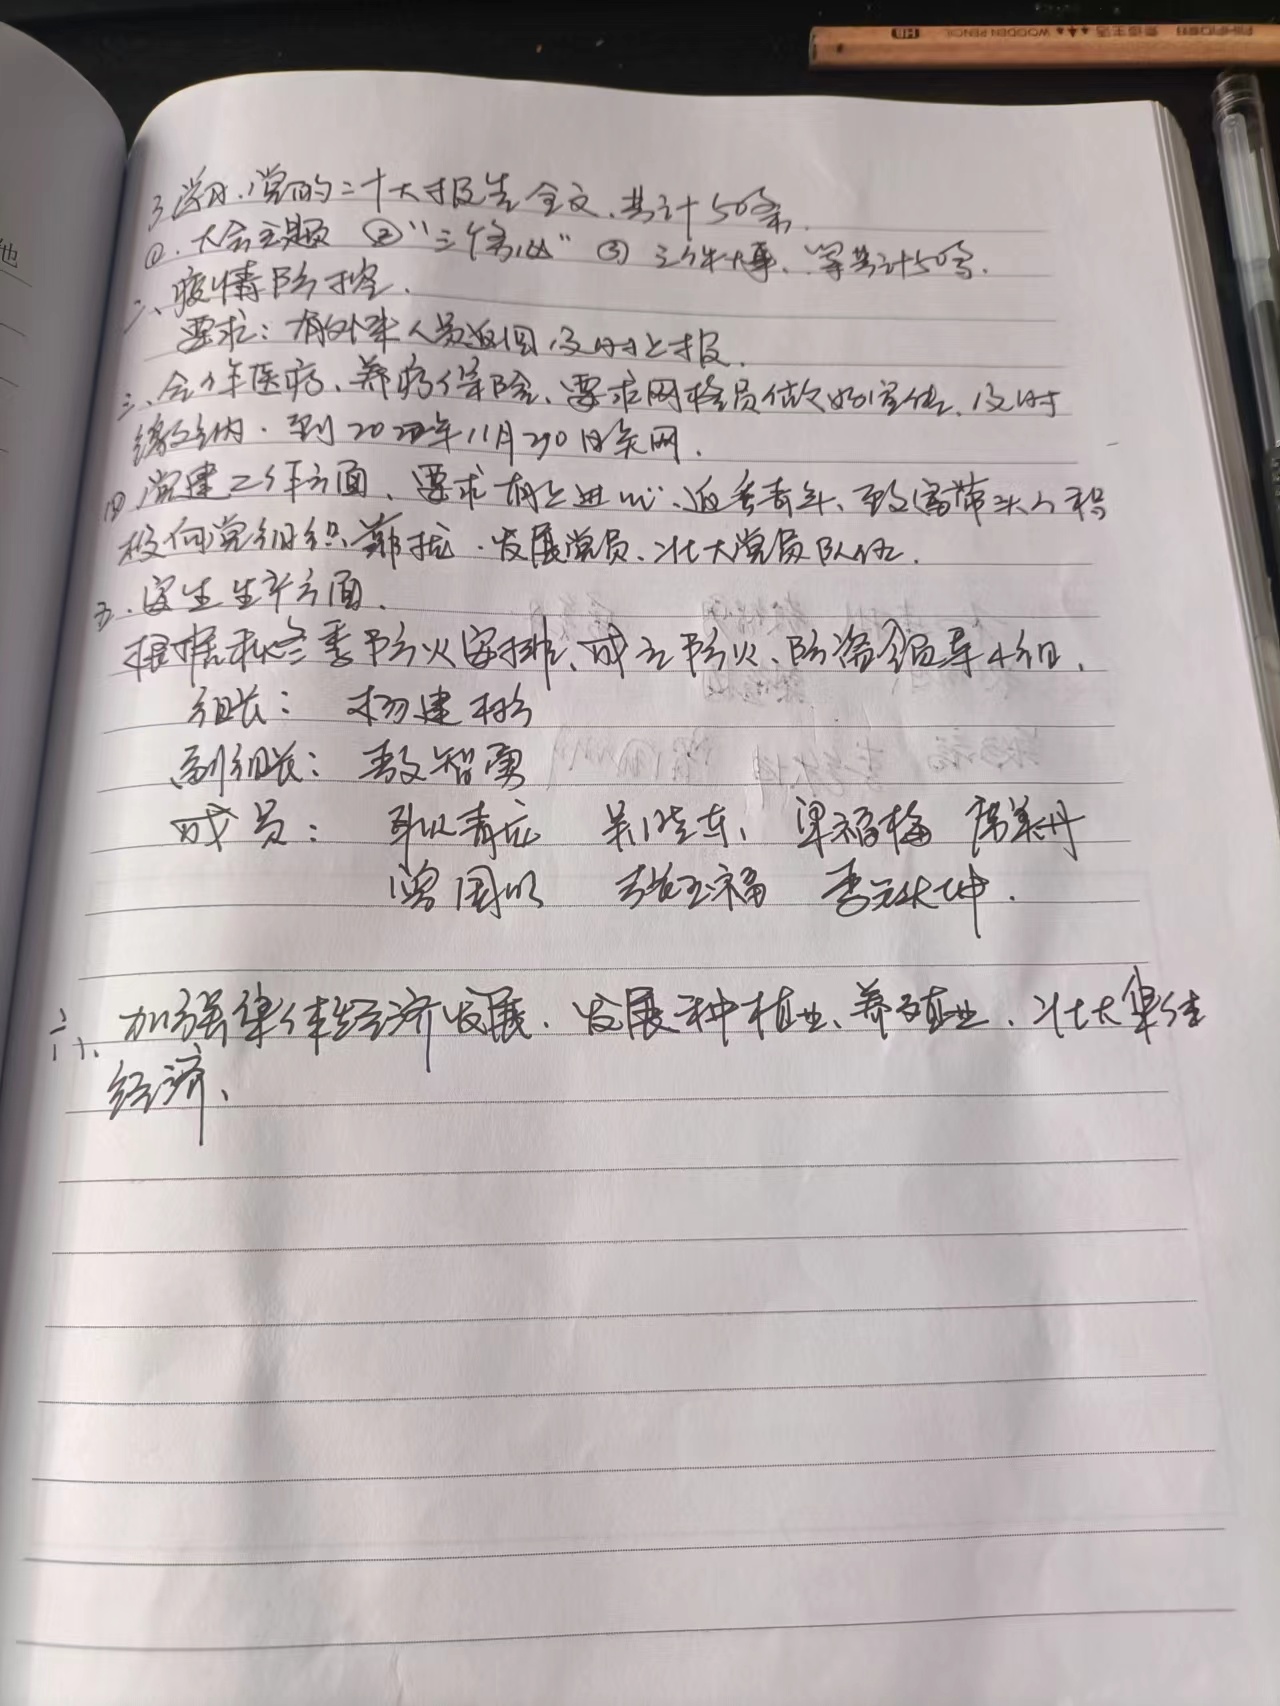 HB WOODEN PENCIL
他
3 学习、党的二十大报告全文、共计50条.
①、大会主题 ②"三个务必" ③ 三件大事、等共计50条.
二、疫情防控.
要求:有外来人员返回,及时上报.
三、今年医疗、养老保险、要求网格员做好宣传、及时
缴纳.到2022年11月30日关网.
四 党建工作方面、要求有上进心、返乡青年、致富带头人积
极向党组织靠拢.发展党员、壮大党员队伍.
五.安全生产方面.
根据秋冬季防火安排、成立防火、防盗领导小组.
组长: 杨建彬
副组长: 敖智勇
成员: 青 吴晓东、 梁福梅 席美丹
曾国 玉福 李 坤.
六、加强集体经济发展.发展种植业、养殖业、壮大集体
经济、